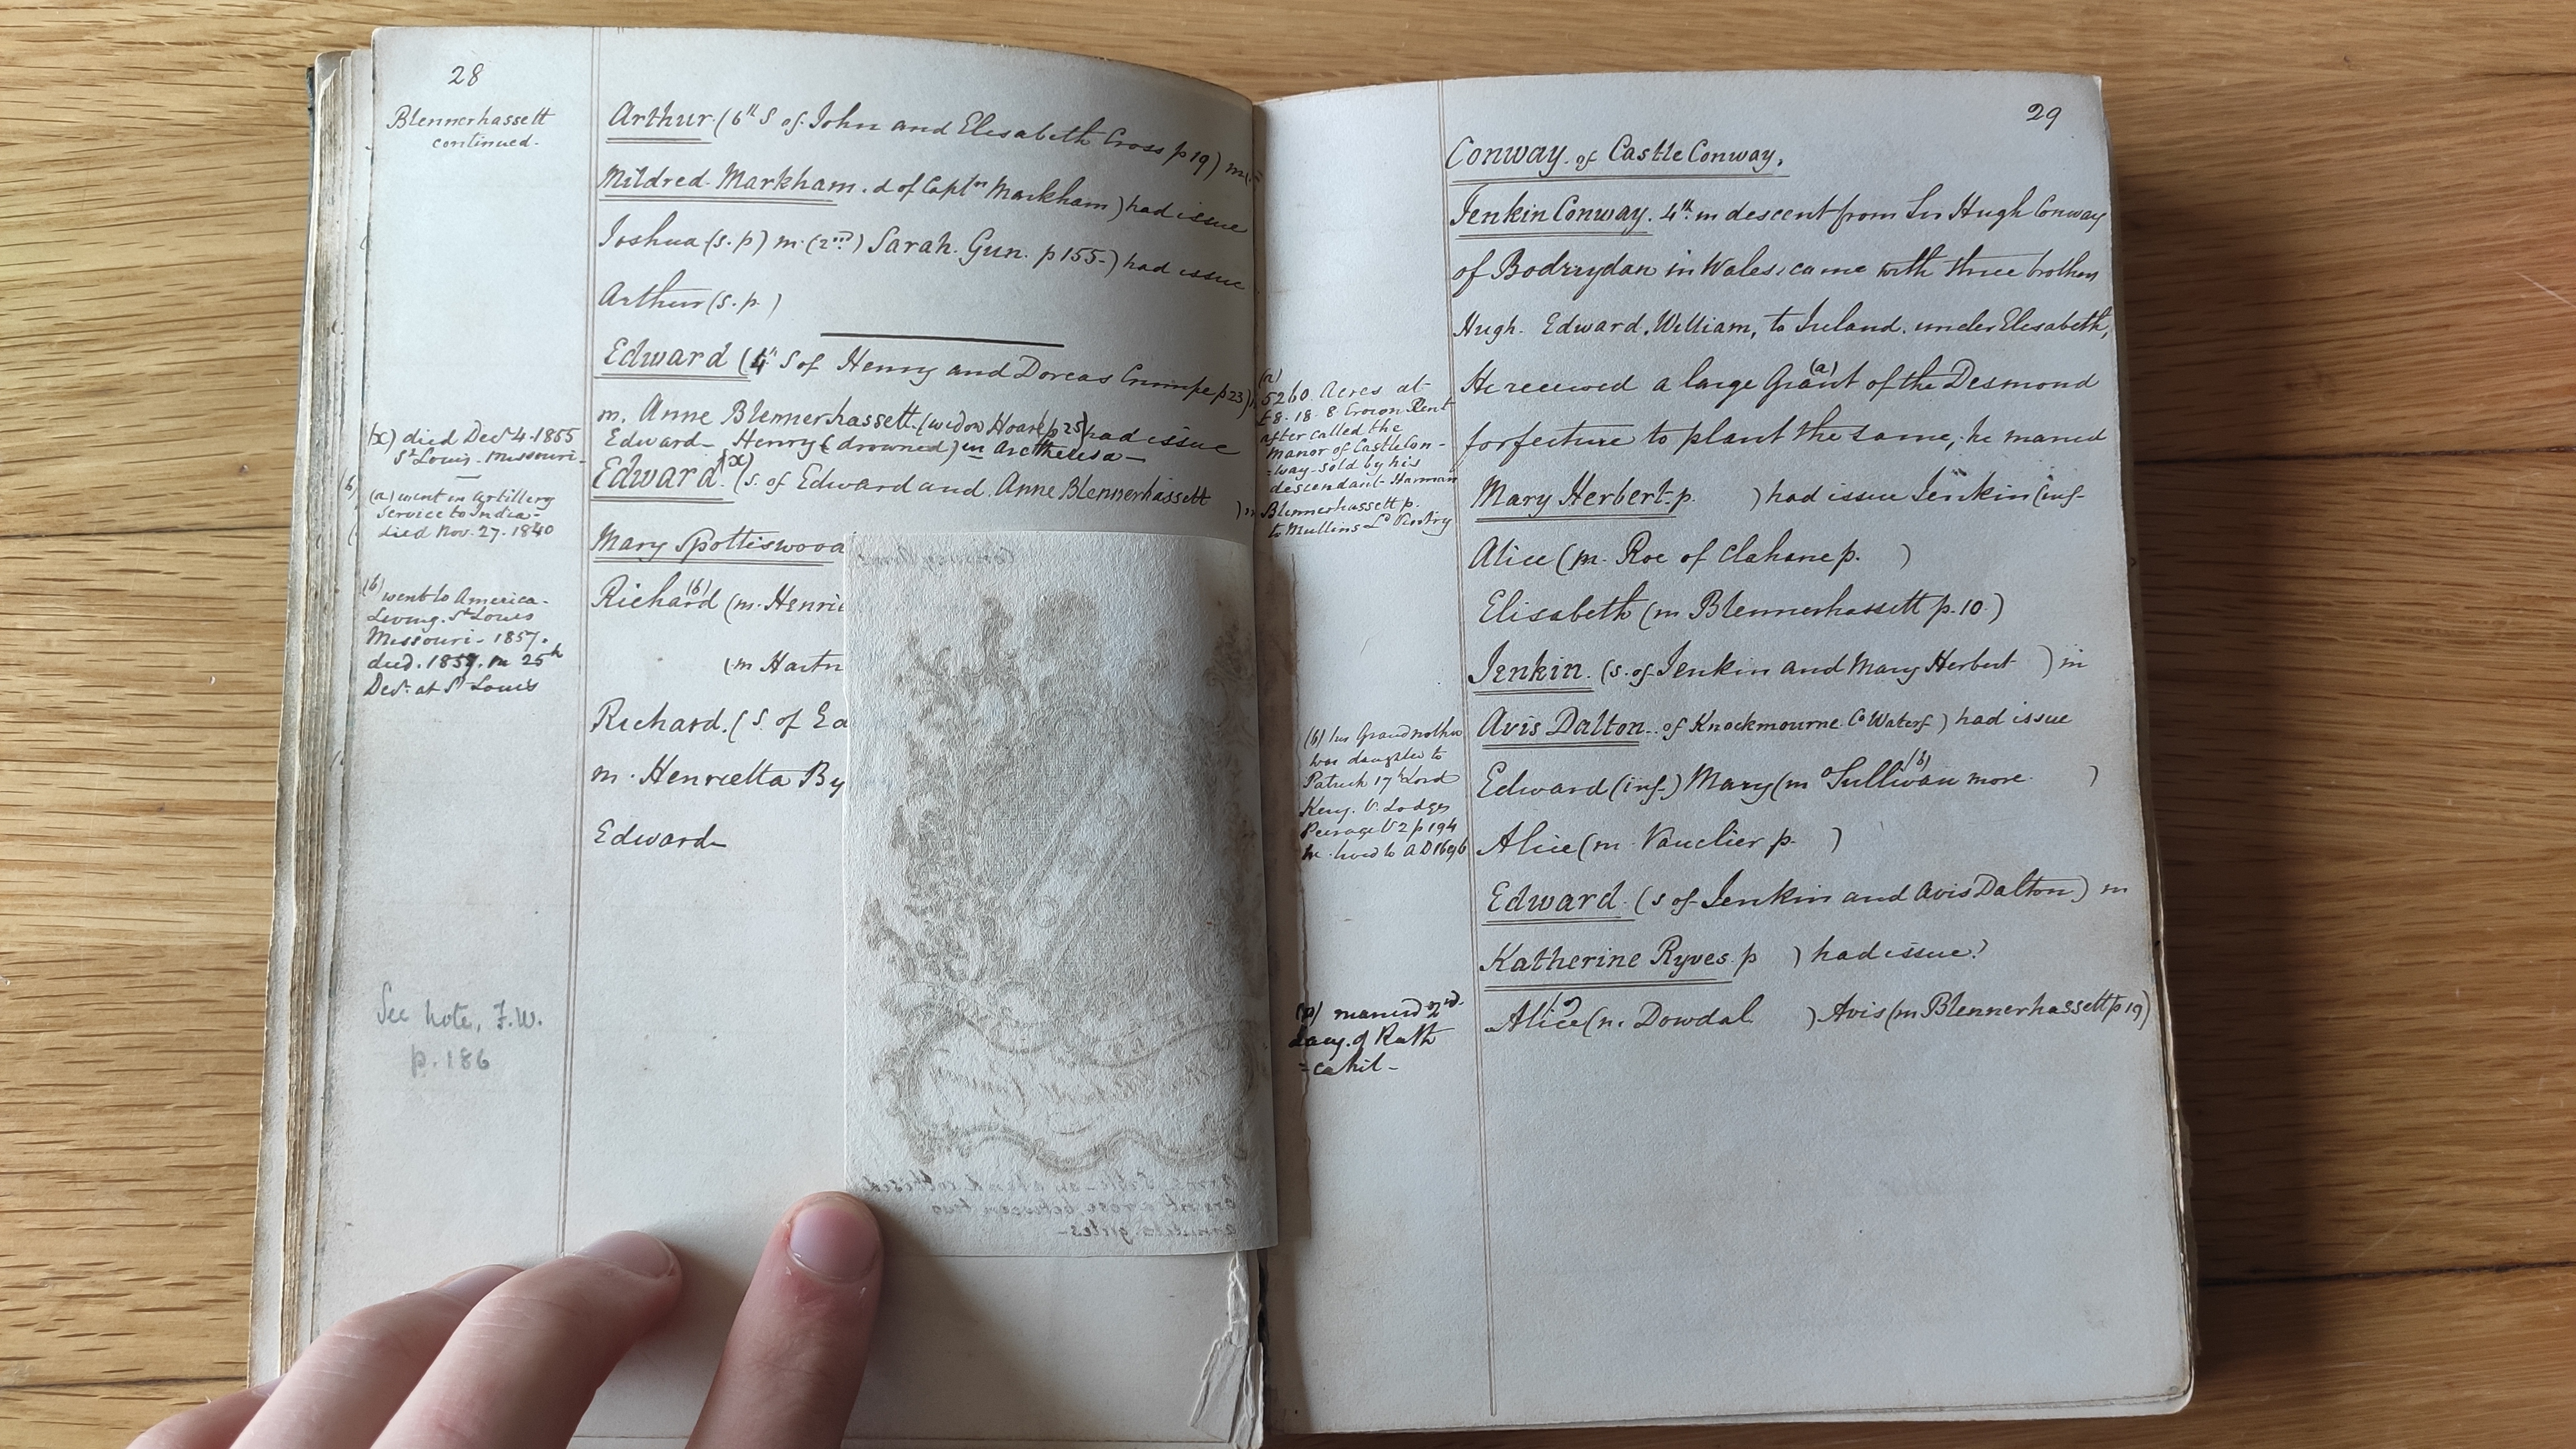 28
Blennerhassett
continued.
Arthur (6th S of John and Elisabeth Cross p 19) m
Mildred Markham. d of Captn Markham) had issue
Joshua (s.p) m (2nd) Sarah. Gun. p 155-) had issue
Arthur (s.p.)
Edward (4th S of Henry and Dorcas Crumpe p 23)
m. Anne Blennerhassett (widow Hoare p 25) had issue
Edward- Henry (drowned) in
Edward (x) (s. of Edward and Anne Blennerhassett) m
Mary Spottiswood
Richard (b) (m. Henrie
(m Hartn
Richard. (S of Ed
m. Henrietta By
Edward-
(x) died Decr 4. 1855
St Louis - Missouri-
(a) went in Artillery
Service to India-
died Nov. 27. 1840
(b) went to America-
Living. St Louis
Missouri- 1857.
died. 1857. on 25th
Decr. at St Louis
See note, F.W.
p. 186
29
Conway of Castle Conway.
Jenkin Conway. 4th in descent from Sir Hugh Conway
of Bodrrydan in Wales, came with three brothers
Hugh. Edward, William, to Ireland. under Elisabeth,
He received a large Grant (a) of the Desmond
forfeiture to plant the same, he married
Mary Herbert p. ) had issue Jenkin (inf-
Alice (m. Roe of Clahane p. )
Elisabeth (m Blennerhassett p. 10)
Jenkin. (s. of Jenkin and Mary Herbert ) m
Avis Dalton. of Knockmourne. Co Waterf) had issue
Edward (inf.) Mary (m O'Sullivan (b) more )
Alice (m. Vauclier p. )
Edward. (s of Jenkin and Avis Dalton) m
Katherine Ryves. p ) had issue?
Alice (m. Dowdal ) Avis (m Blennerhassett p 19)
(a)
5260 Acres at
£8. 18. 8 Crown Rent
after called the
Manor of Castle Con-
=way- sold by his
descendant- Harman
Blennerhassett p.
to Mullins Ld Ventry
(b) his Grandmother
was daughter to
Patrick 17th Lord
Kerry. V. Lodges
Peerage V 2 p 194
he lived to AD 1696
married 2nd
Lacy. of Rath
=cahil-